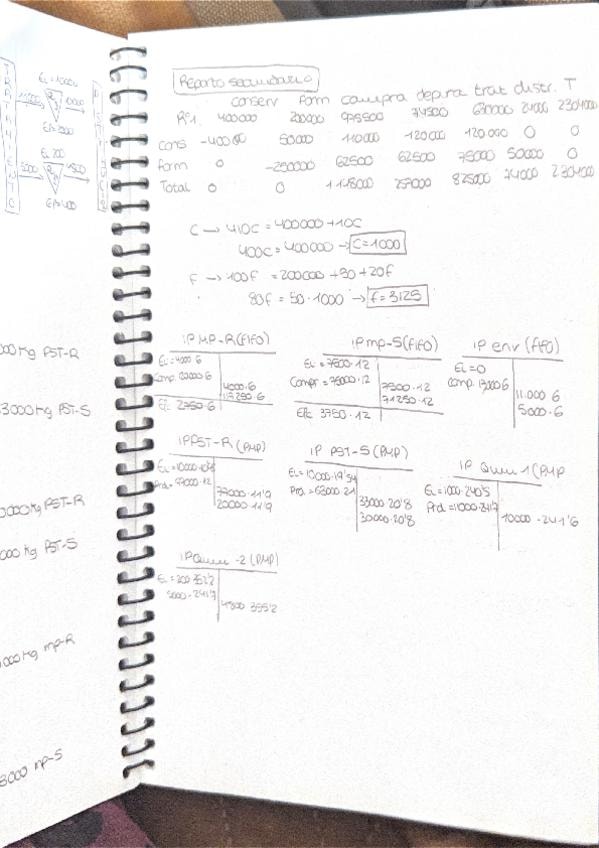 Reparto secundario
conserv form compra depura trat distr. T
Rº1. 400000 200000 975500 74500 630000 24000 2304000
Cons -400000 50000 110000 120000 120000 0 0
form 0 -250000 62500 62500 75000 50000 0
Total 0 0 1148000 257000 825000 74000 2304000
C → 410C = 400000 + 10C
400C = 400000 → C = 1000
f → 100f = 200000 + 50 + 20f
80f = 50·1000 → f = 3125
IP MP-R (FIFO)
Ei = 4000·6
Comp.
4000·6
Ef: 2750·6
IP mp-S (FIFO)
Ei = 7500·12
Compr = 75000·12
7500·12
71250·12
Ef: 3750·12
IP env (FIFO)
Ei = 0
comp. 6
11.000 6
5000·6
IP PST-R (PMP)
Ei = 10000·
Prod =
77000·11'9
20000·11'9
IP PST-S (PMP)
Ei = 10000·19'54
Pro. = 63000·21
33000·20'8
30000·20'8
IP Quim 1 (PMP
Ei = 1000·240'5
Prod = 10000·241'7
10000·241'6
IP Quim-2 (PMP)
Ei = 200·352'2
5000·241'7
4800·355'2
Ei = 1000
10000
Ei 200
5000
000 Kg PST-R
33000 Kg PST-S
0000 Kg PST-R
000 Kg PST-S
000 Kg mp-R
3000 mp-S